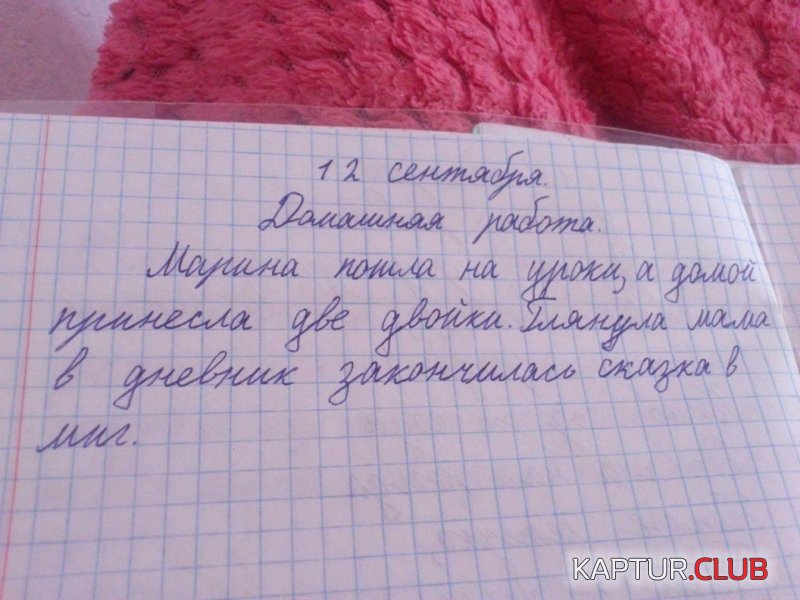 12 сентября.
Домашная работа.
Марина пошла на уроки, а домой
принесла две двойки. Глянула мама
в дневник закончилась сказка в
миг.
KAPTUR.CLUB